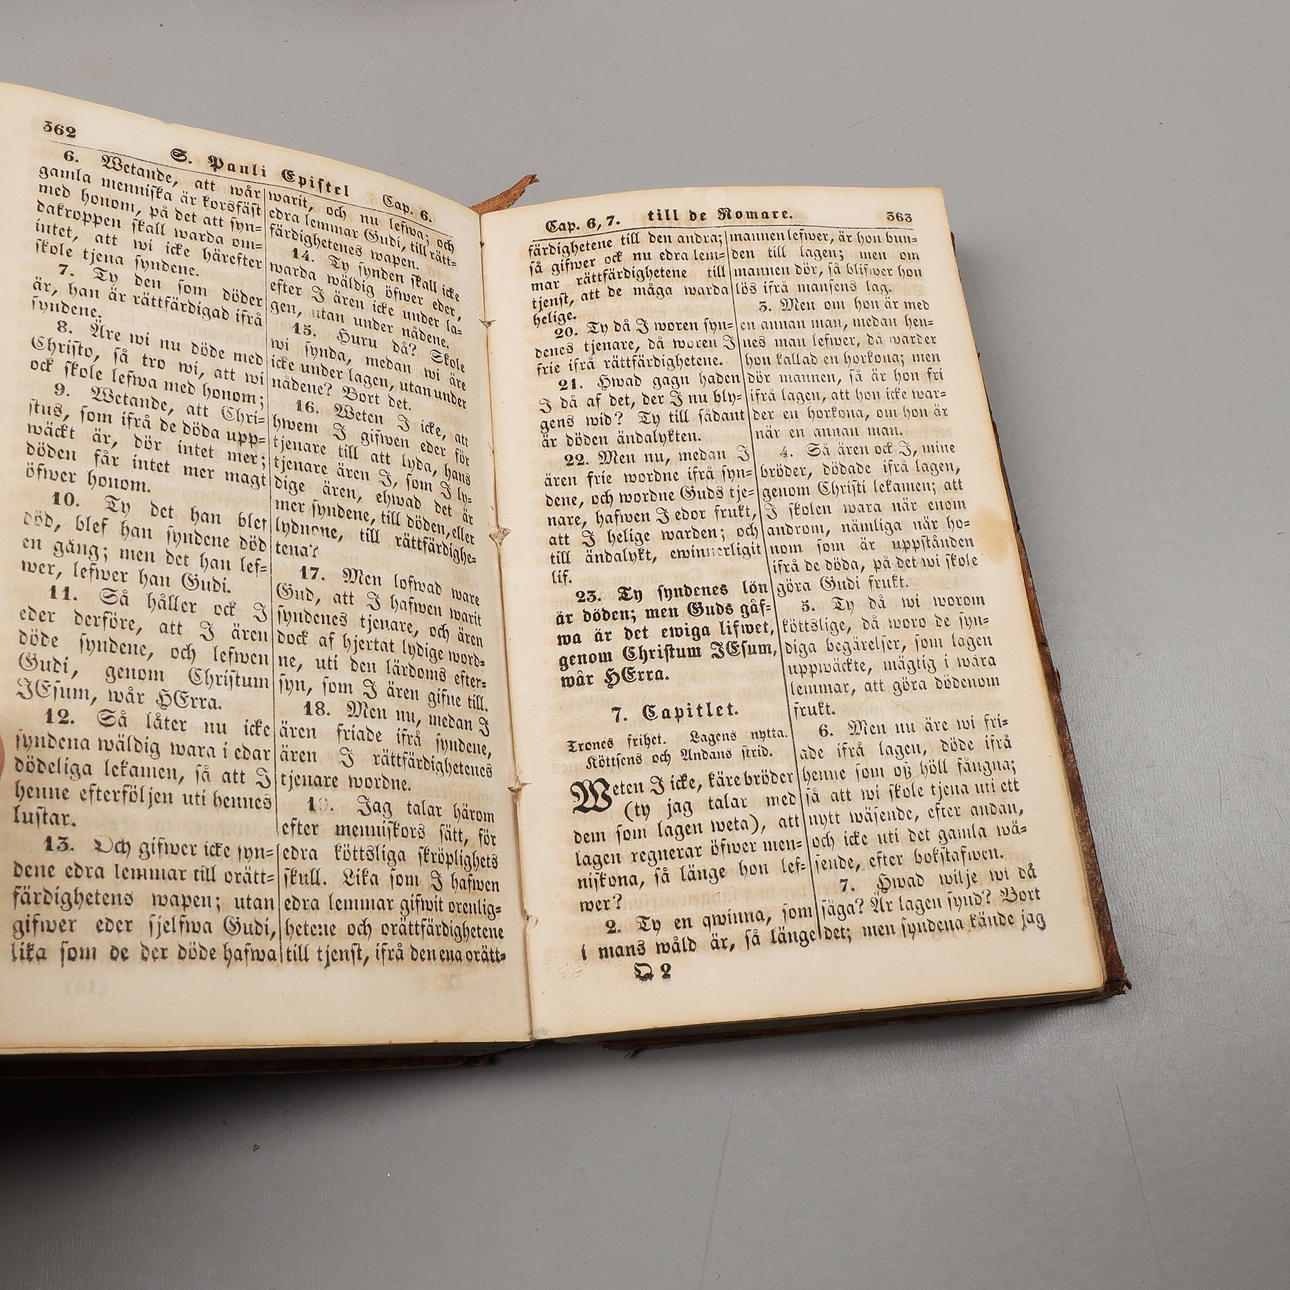 362
S. Pauli Epistel
Cap. 6.
6. Wetande, att wår
gamla menniska är korsfäst
med honom, på det att syn-
dakroppen skall warda om-
intet, att wi icke härefter
skole tjena syndene.
7. Ty den som döder
är, han är rättfärdigad ifrå
syndene.
8. Äre wi nu döde med
Christo, så tro wi, att wi
ock skole lefwa med honom;
9. Wetande, att Chri-
stus, som ifrå de döda upp-
wäckt är, dör intet mer;
döden får intet mer magt
öfwer honom.
10. Ty det han blef
död, blef han syndene död
en gång; men det han lef-
wer, lefwer han Gudi.
11. Så håller ock I
eder derföre, att I ären
döde syndene, och lefwen
Gudi, genom Christum
JEsum, wår HErra.
12. Så låter nu icke
syndena wäldig wara i edar
dödeliga lekamen, så att I
henne efterföljen uti hennes
lustar.
13. Och gifwer icke syn-
dene edra lemmar till orätt-
färdighetens wapen; utan
gifwer eder sjelfwa Gudi,
lika som de der döde hafwa
warit, och nu lefwa; och
edra lemmar Gudi, till rätt-
färdighetenes wapen.
14. Ty synden skall icke
warda wäldig öfwer eder,
efter I ären icke under la-
gen, utan under nådene.
15. Huru då? Skole
wi synda, medan wi äre
icke under lagen, utan under
nådene? Bort det.
16. Weten I icke, att
hwem I gifwen eder för
tjenare till att lyda, hans
tjenare ären I, som I ly-
dige ären, ehwad det är
mer syndene, till döden, eller
lydnone, till rättfärdighe-
tena?
17. Men lofwad ware
Gud, att I hafwen warit
syndenes tjenare, och ären
dock af hjertat lydige word-
ne, uti den lärdoms efter-
syn, som I ären gifne till.
18. Men nu, medan I
ären friade ifrå syndene,
ären I rättfärdighetenes
tjenare wordne.
19. Jag talar härom
efter menniskors sätt, för
edra köttsliga skröplighets
skull. Lika som I hafwen
edra lemmar gifwit orenlig-
hetene och orättfärdighetene
till tjenst, ifrå den ena orätt-
Cap. 6, 7.
till de Romare.
363
färdighetene till den andra;
så gifwer ock nu edra lem-
mar rättfärdighetene till
tjenst, att de måga warda
helige.
20. Ty då I woren syn-
denes tjenare, då woren I
frie ifrå rättfärdighetene.
21. Hwad gagn haden
I då af det, der I nu bly-
gens wid? Ty till sådant
är döden ändalykten.
22. Men nu, medan I
ären frie wordne ifrå syn-
dene, och wordne Guds tje-
nare, hafwen I edor frukt,
att I helige warden; och
till ändalykt, ewinnerligit
lif.
23. Ty syndenes lön
är döden; men Guds gåf-
wa är det ewiga lifwet,
genom Christum JEsum,
wår HErra.
7. Capitlet.
Trones frihet. Lagens nytta.
Köttsens och Andans strid.
Weten I icke, käre bröder
(ty jag talar med
dem som lagen weta), att
lagen regnerar öfwer men-
niskona, så länge hon lef-
wer?
2. Ty en qwinna, som
i mans wåld är, så länge
Q 2
mannen lefwer, är hon bun-
den till lagen; men om
mannen dör, så blifwer hon
lös ifrå mansens lag.
3. Men om hon är med
en annan man, medan hen-
nes man lefwer, då warder
hon kallad en horkona; men
dör mannen, så är hon fri
ifrå lagen, att hon icke war-
der en horkona, om hon är
när en annan man.
4. Så ären ock I, mine
bröder, dödade ifrå lagen,
genom Christi lekamen; att
I skolen wara när enom
androm, nämliga när ho-
nom som är uppstånden
ifrå de döda, på det wi skole
göra Gudi frukt.
5. Ty då wi worom
köttslige, då woro de syn-
diga begärelser, som lagen
uppwäckte, mägtig i wåra
lemmar, att göra dödenom
frukt.
6. Men nu äre wi fri-
ade ifrå lagen, döde ifrå
henne som oss höll fångna;
så att wi skole tjena uti ett
nytt wäsende, efter andan,
och icke uti det gamla wä-
sende, efter bokstafwen.
7. Hwad wilje wi då
säga? Är lagen synd? Bort
det; men syndena kände jag